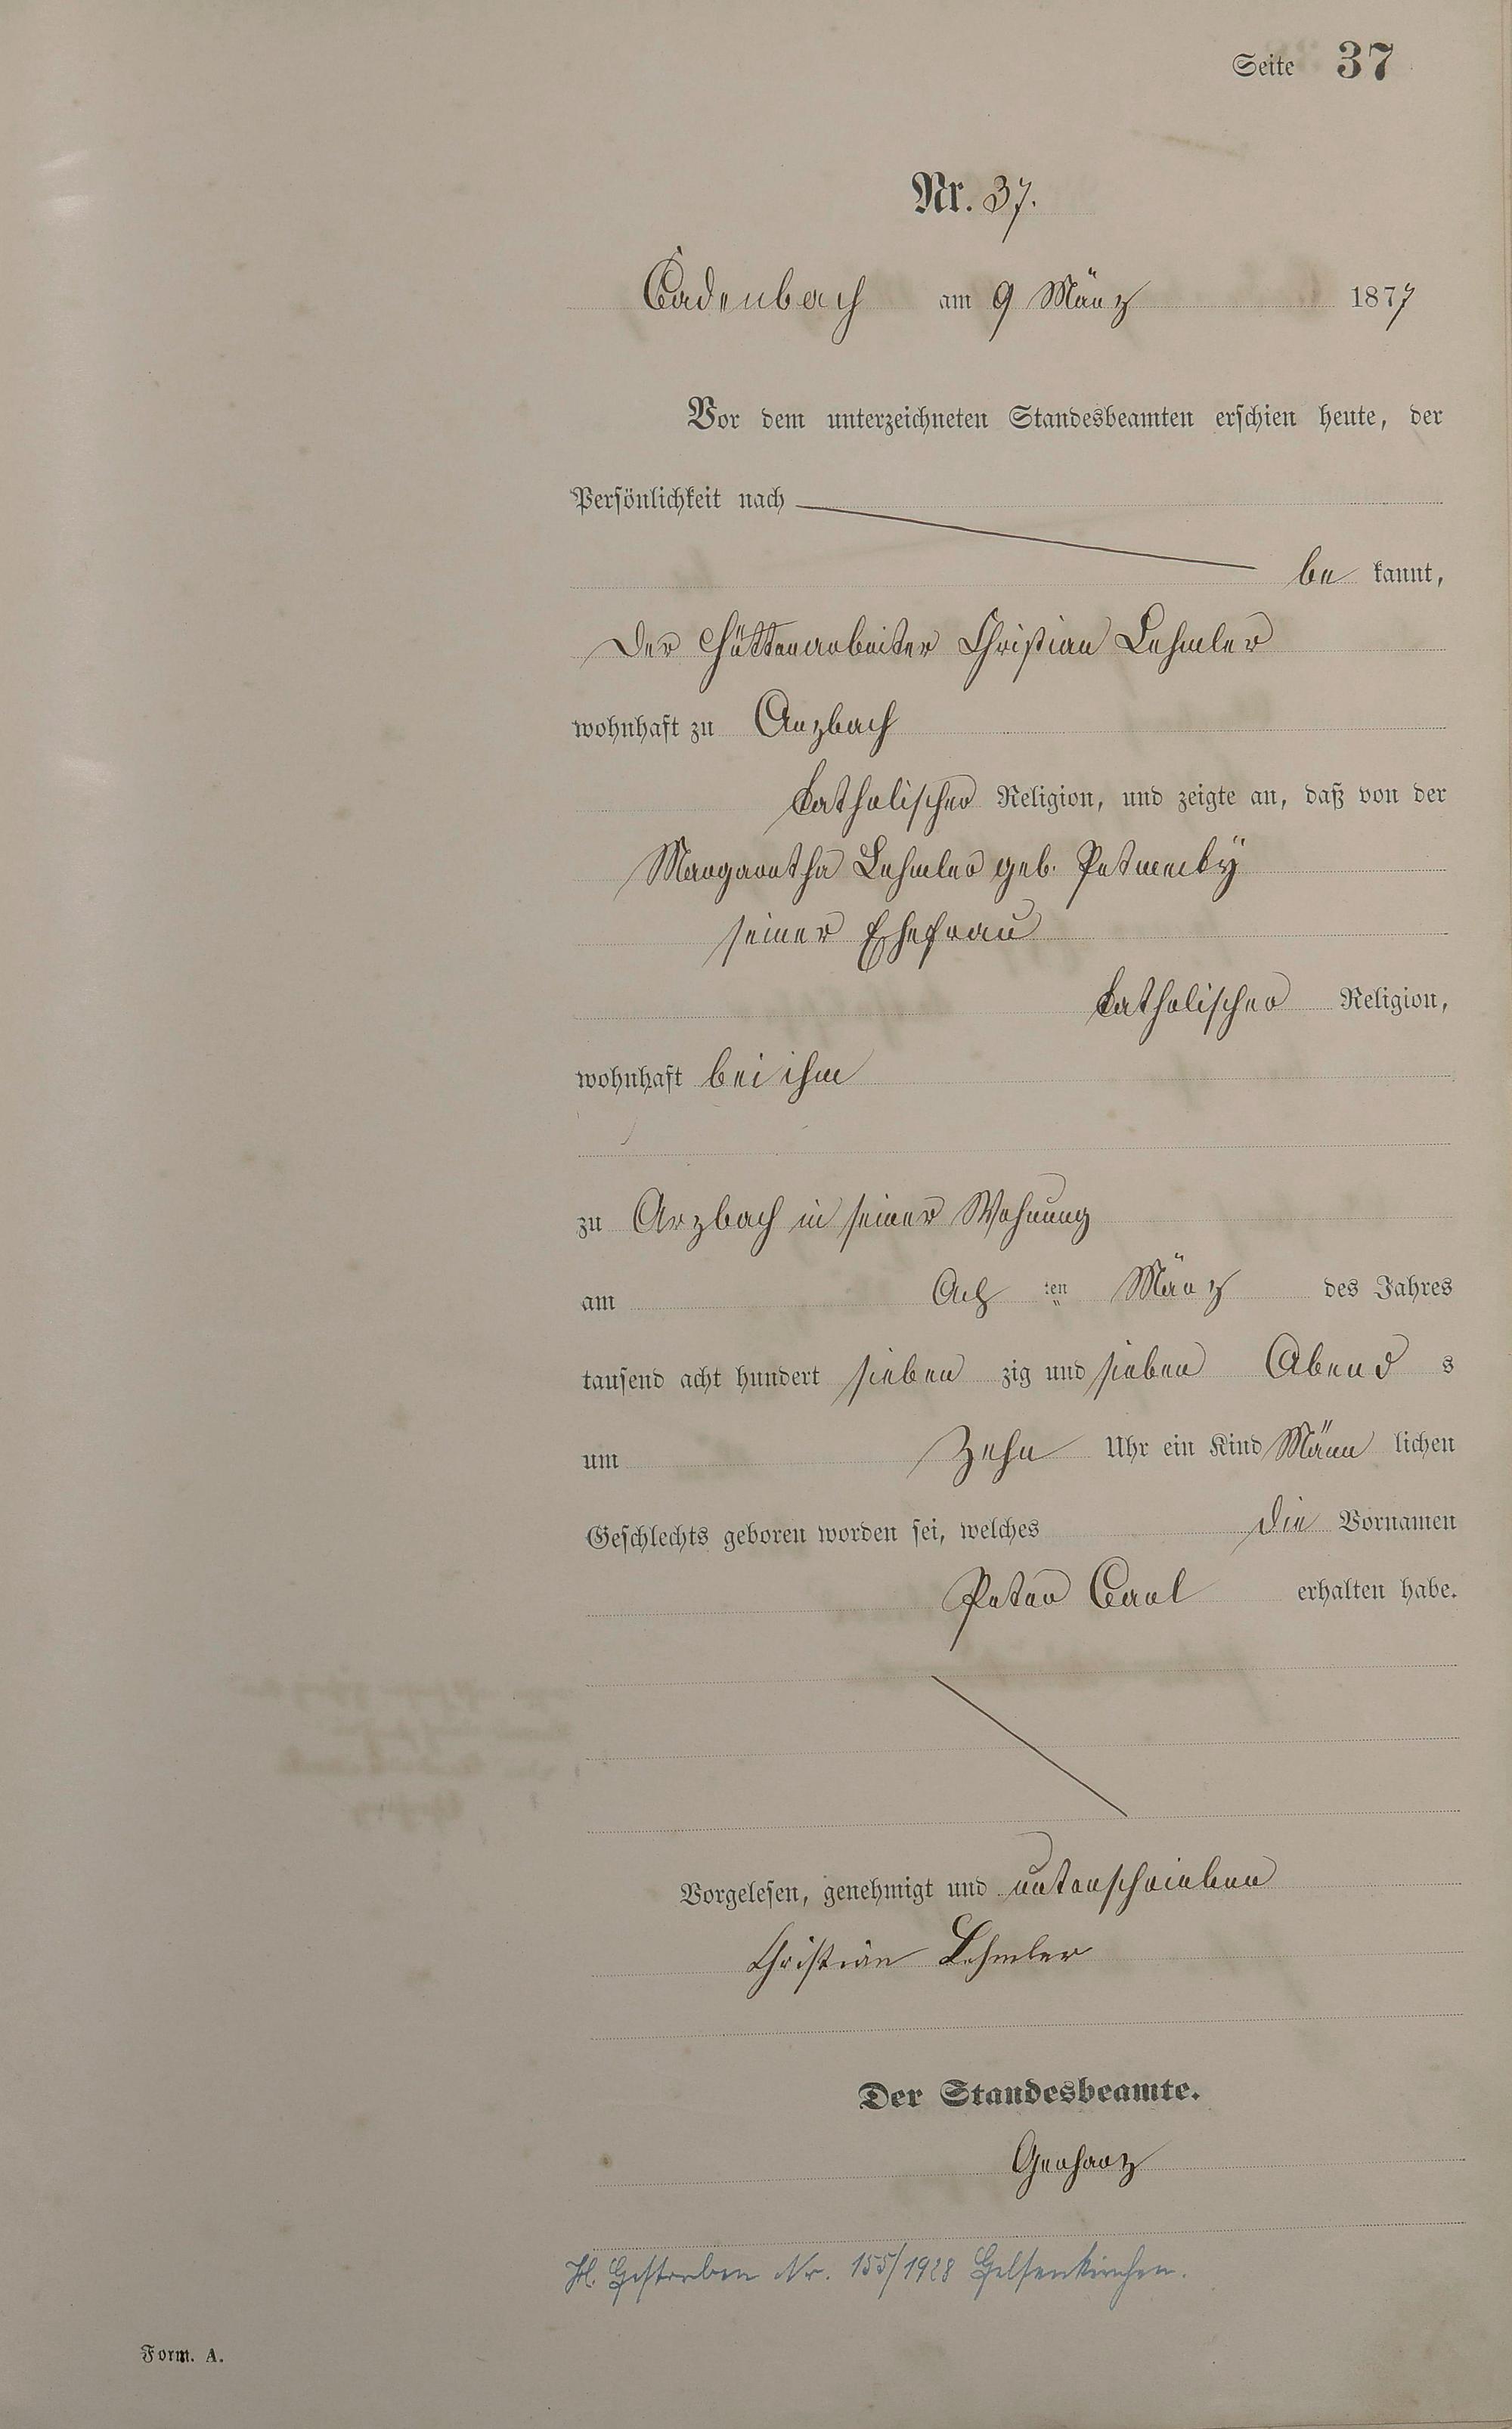 Seite 37
Nr. 37.
Cadenbach am 9 März 1877
Vor dem unterzeichneten Standesbeamten erschien heute, der
Persönlichkeit nach
be kannt,
der Hüttenarbeiter Christian Lehmler
wohnhaft zu Arzbach
katholischer Religion, und zeigte an, daß von der
Margaretha Lehmler geb.
seiner Ehefrau
katholischer Religion,
wohnhaft bei ihm
zu Arzbach in seiner Wohnung
am Ach ten März des Jahres
tausend acht hundert sieben zig und sieben Abend s
um Zehn Uhr ein Kind Männ lichen
Geschlechts geboren worden sei, welches die Vornamen
Peter Carl erhalten habe.
Vorgelesen, genehmigt und unterschrieben
Christian Lehmler
Der Standesbeamte.
Gerharz
Gestorben Nr. 155/1928 Gelsenkirchen.
Form. A.